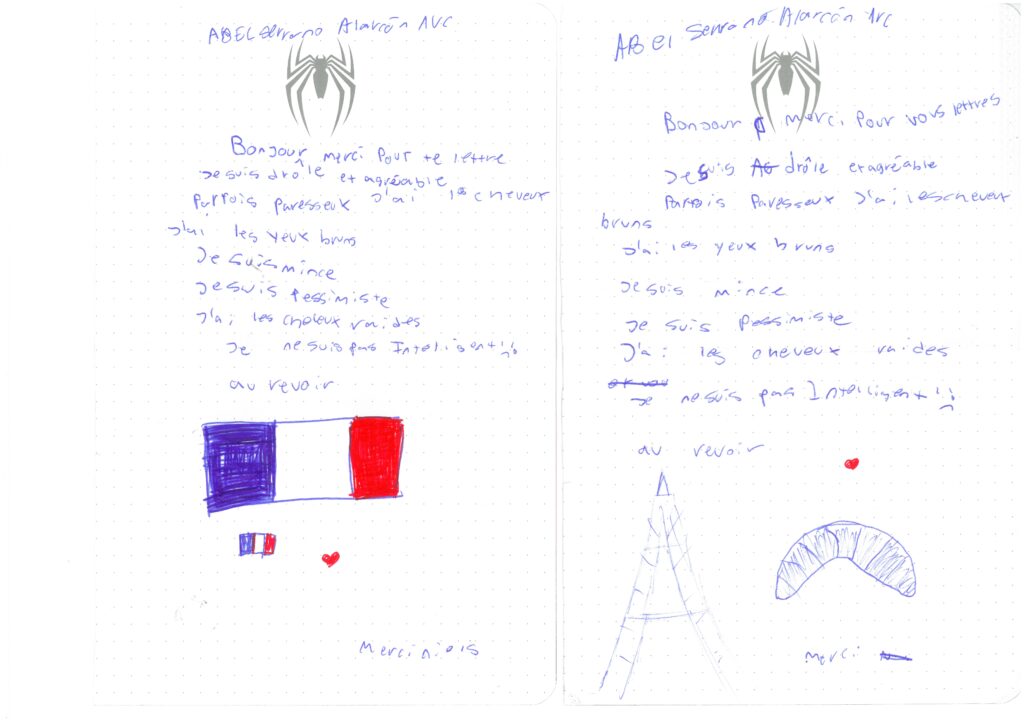 ABEL Serrano Alarcón 1VC
Bonjour merci pour te lettre
Je suis drôle et agréable
Parfois paresseux J'ai les cheveux
J'ai les yeux bruns
Je suis mince
Je suis pessimiste
J'ai les cheveux raides
Je ne suis pas Intelisent !!
au revoir
Merci
ABEl Serrano Alarcón 1vc
Bonjour merci Pour vous lettres
Je suis drôle et agréable
Parfois Paresseux J'ai les cheveux
bruns
J'ai les yeux bruns
Je suis mince
Je suis Pessimiste
J'ai les cheveux raides
Je ne suis pas Intelligent !!
au revoir
merci